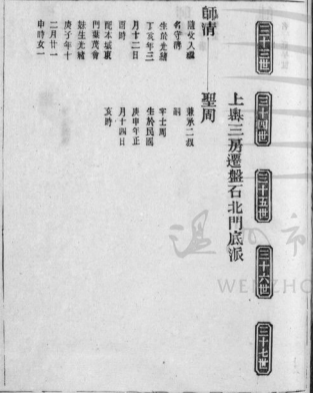 三十三世
三十四世
三十五世
三十六世
三十七世
上輿三房遷盤石北門底派
師清
聖周
隨父入繼
名守清
生於光緒
丁亥年三
月十二日
酉時
配本城東
門葉茂會
姓生光緒
庚子年十
二月廿一
申時女一
兼承二叔
嗣
字士周
生於民國
庚申年正
月十四日
亥時
WENZHO